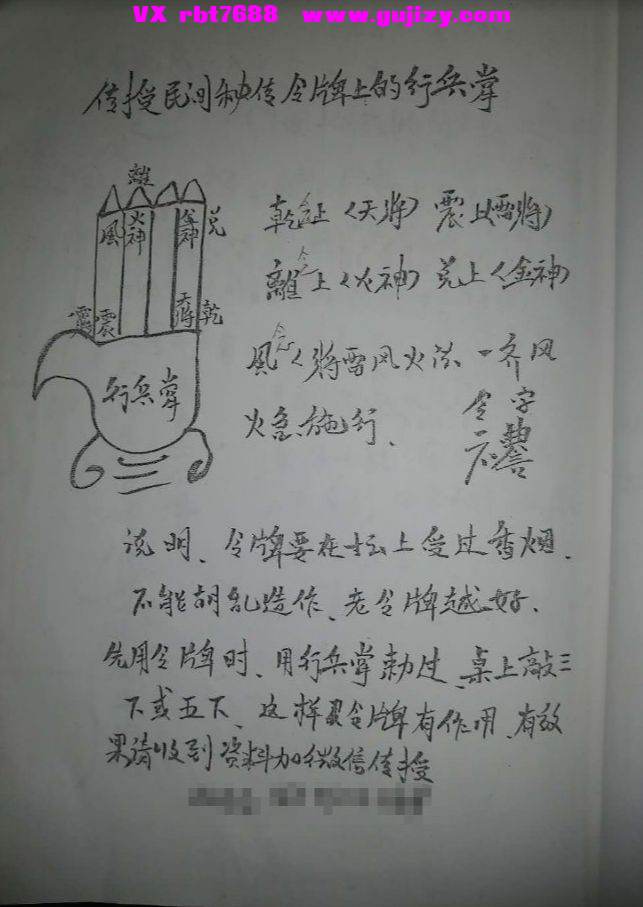 VX rbt7688 www.gujizy.com
传授民间秘传令牌上的行兵掌
離
風 火神 金神 兑
震 天将 乾
行兵掌
乾 上（天将）震上（雷将）
念
離 上（火神）兑上（金神）
念
風（将雷风火 一齐风
火急施行、
令字
说明、令牌要在坛上受过香烟、
不能胡乱造作、老令牌越好、
先用令牌时、用行兵掌勅过、桌上敲三
下或五下、这样 令牌有作用、有效
果请收到资料加微信传授